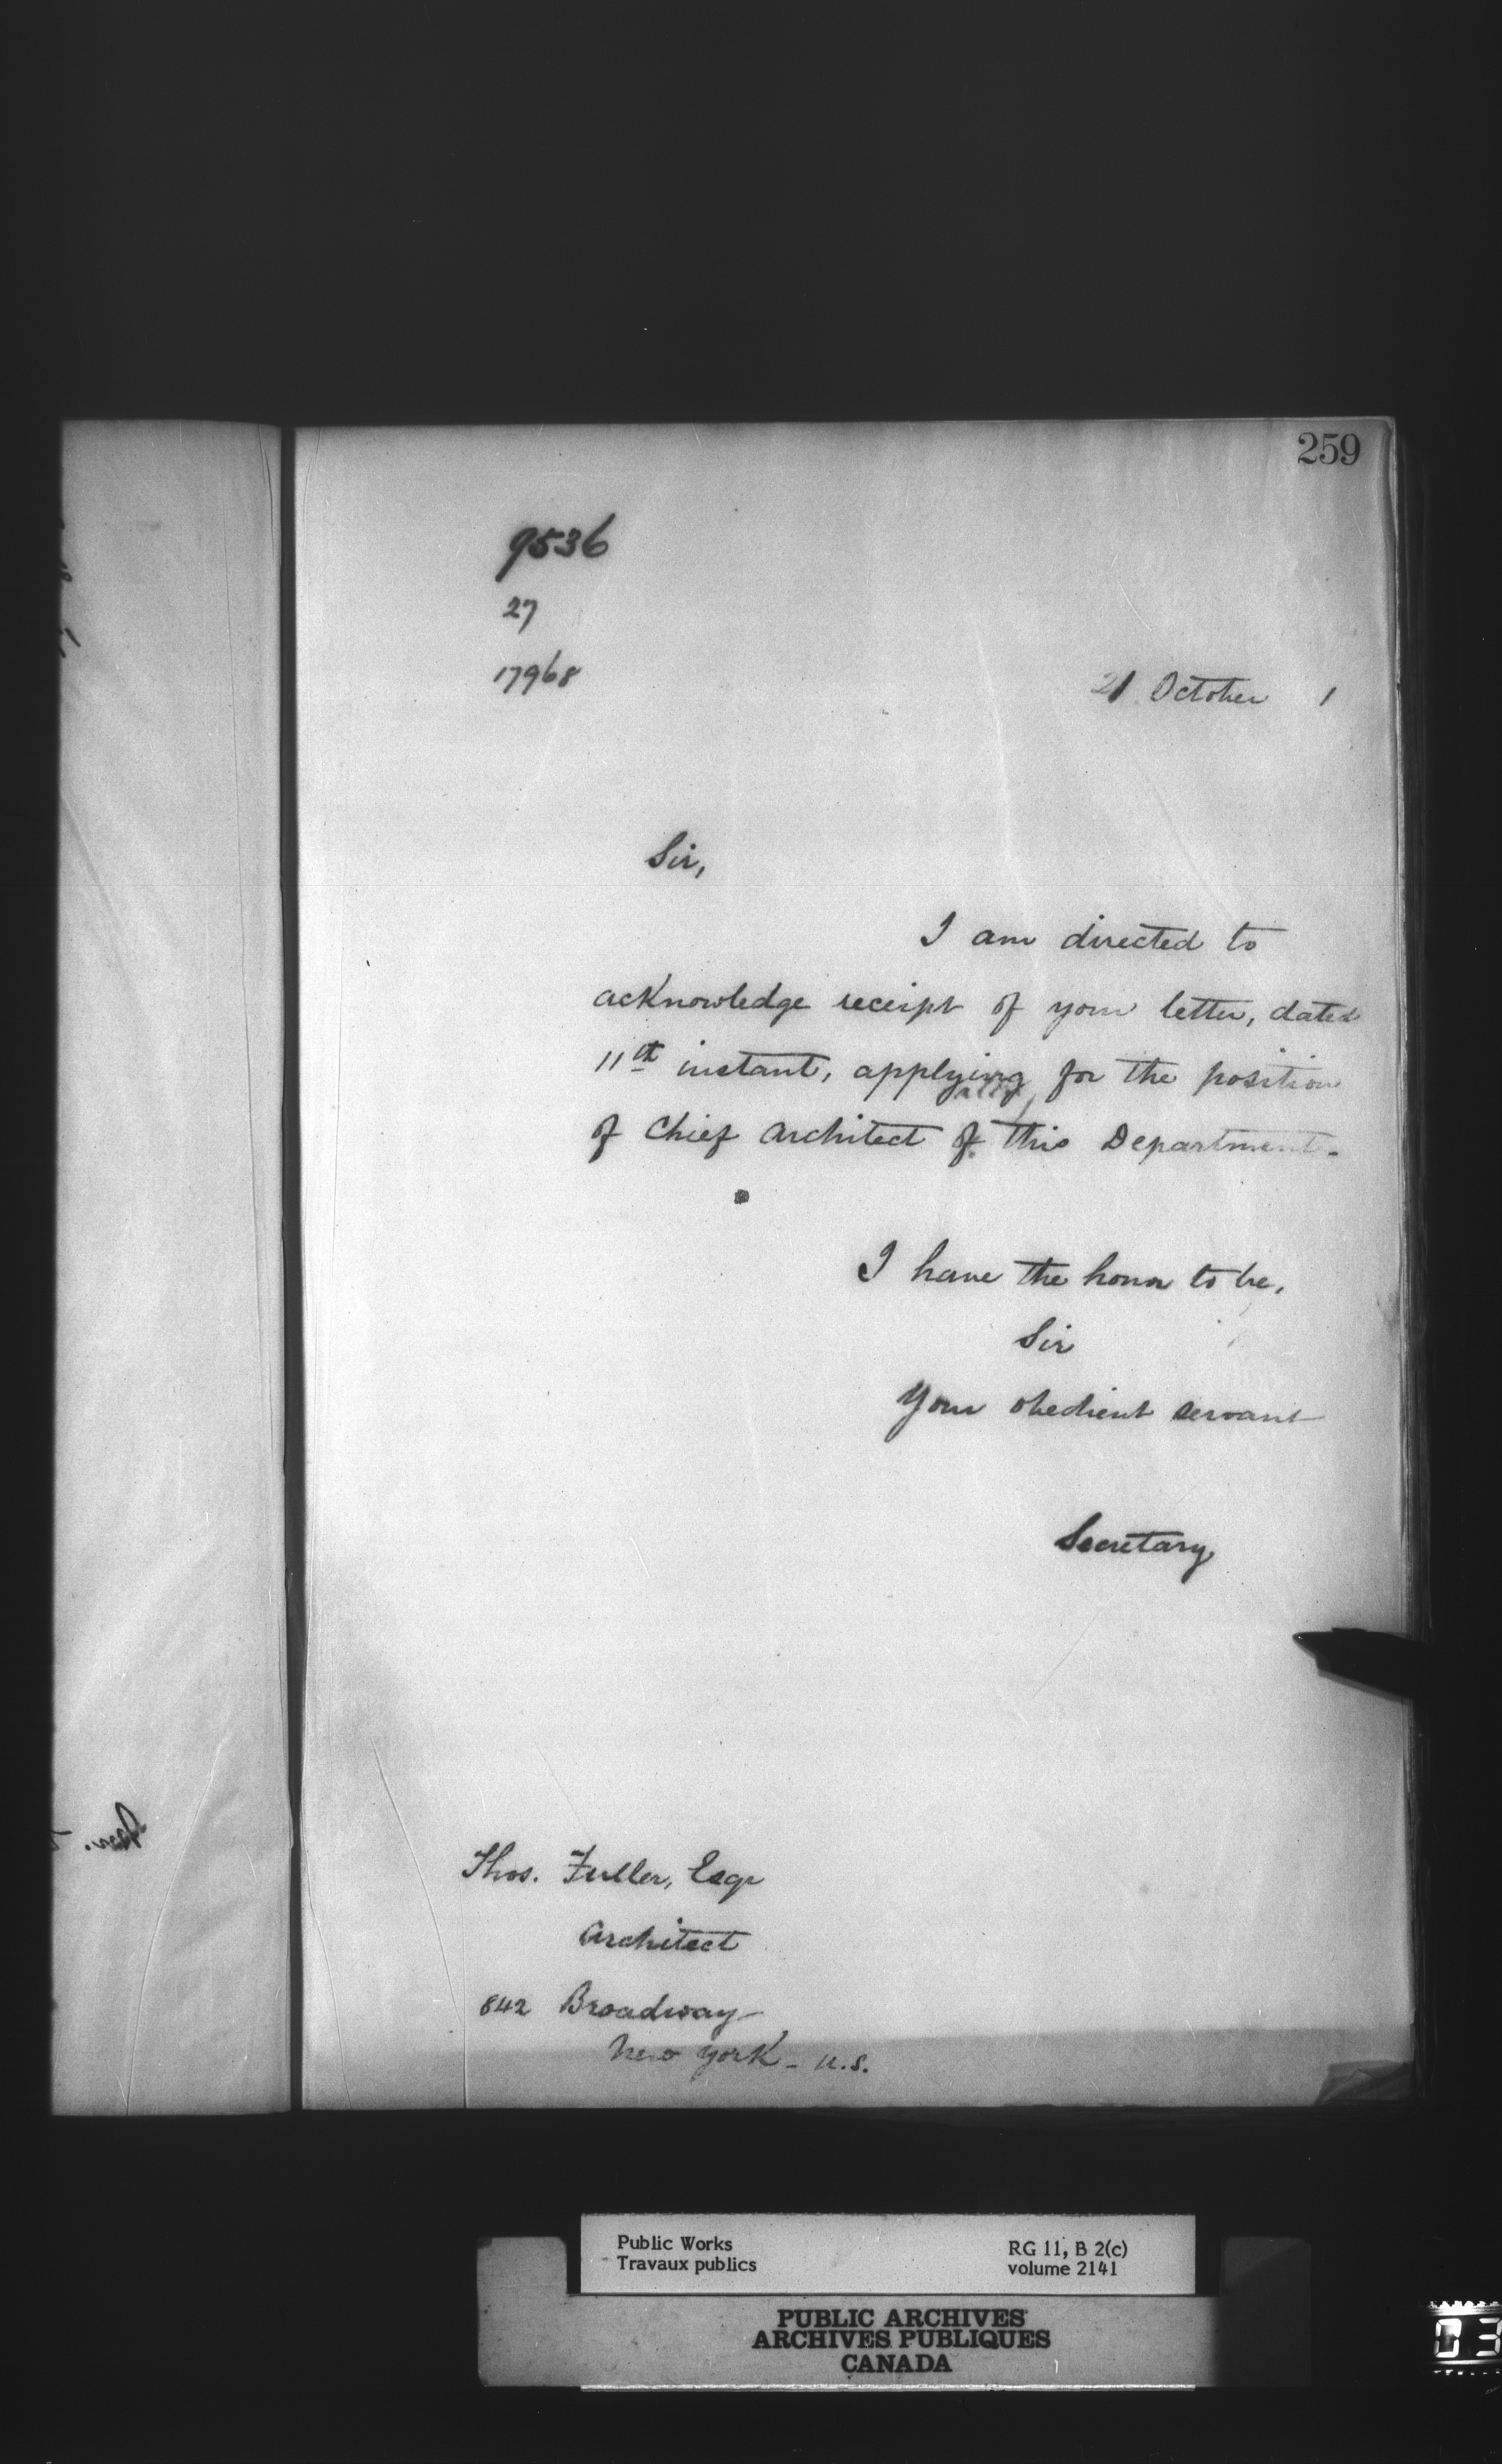 259
9536
27
17968
21 October 1
Sir,
I am directed to
acknowledge receipt of your letter, dated
11th instant, applying for the position
of Chief Architect of this Department.
I have the honor to be,
Sir
Your obedient servant
Secretary
Thos. Fuller, Esqr
Architect
842 Broadway
New York - U.S.
Public Works
Travaux publics
RG 11, B 2(c)
volume 2141
PUBLIC ARCHIVES
ARCHIVES PUBLIQUES
CANADA
03